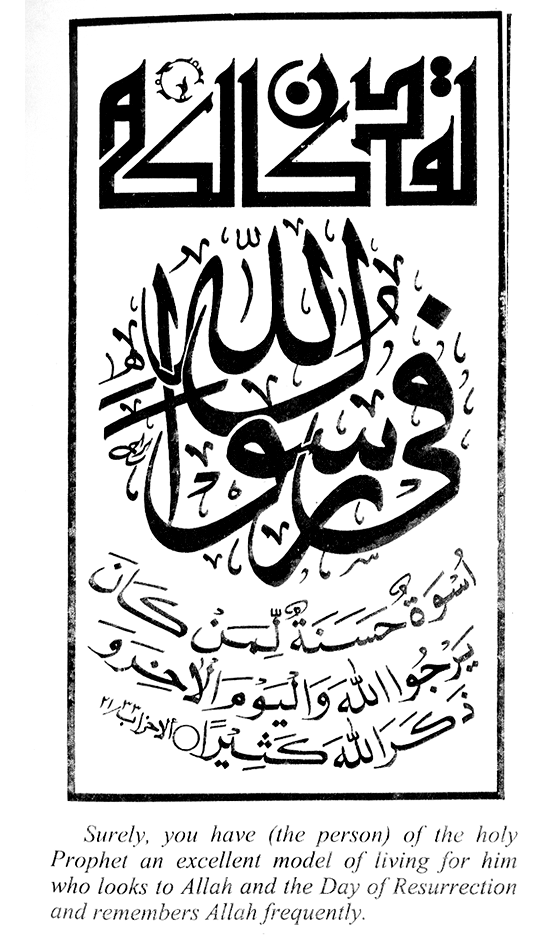 لقد كان لكم
في رسول الله
اُسْوَةٌ حَسَنَةٌ لِّمَنْ كَانَ
يَرْجُوا اللهَ وَالْيَوْمَ الْاٰخِرَ وَ
ذَكَرَ اللهَ كَثِيْرًا ○ الاحزاب ٣٣/٢١
Surely, you have (the person) of the holy
Prophet an excellent model of living for him
who looks to Allah and the Day of Resurrection
and remembers Allah frequently.